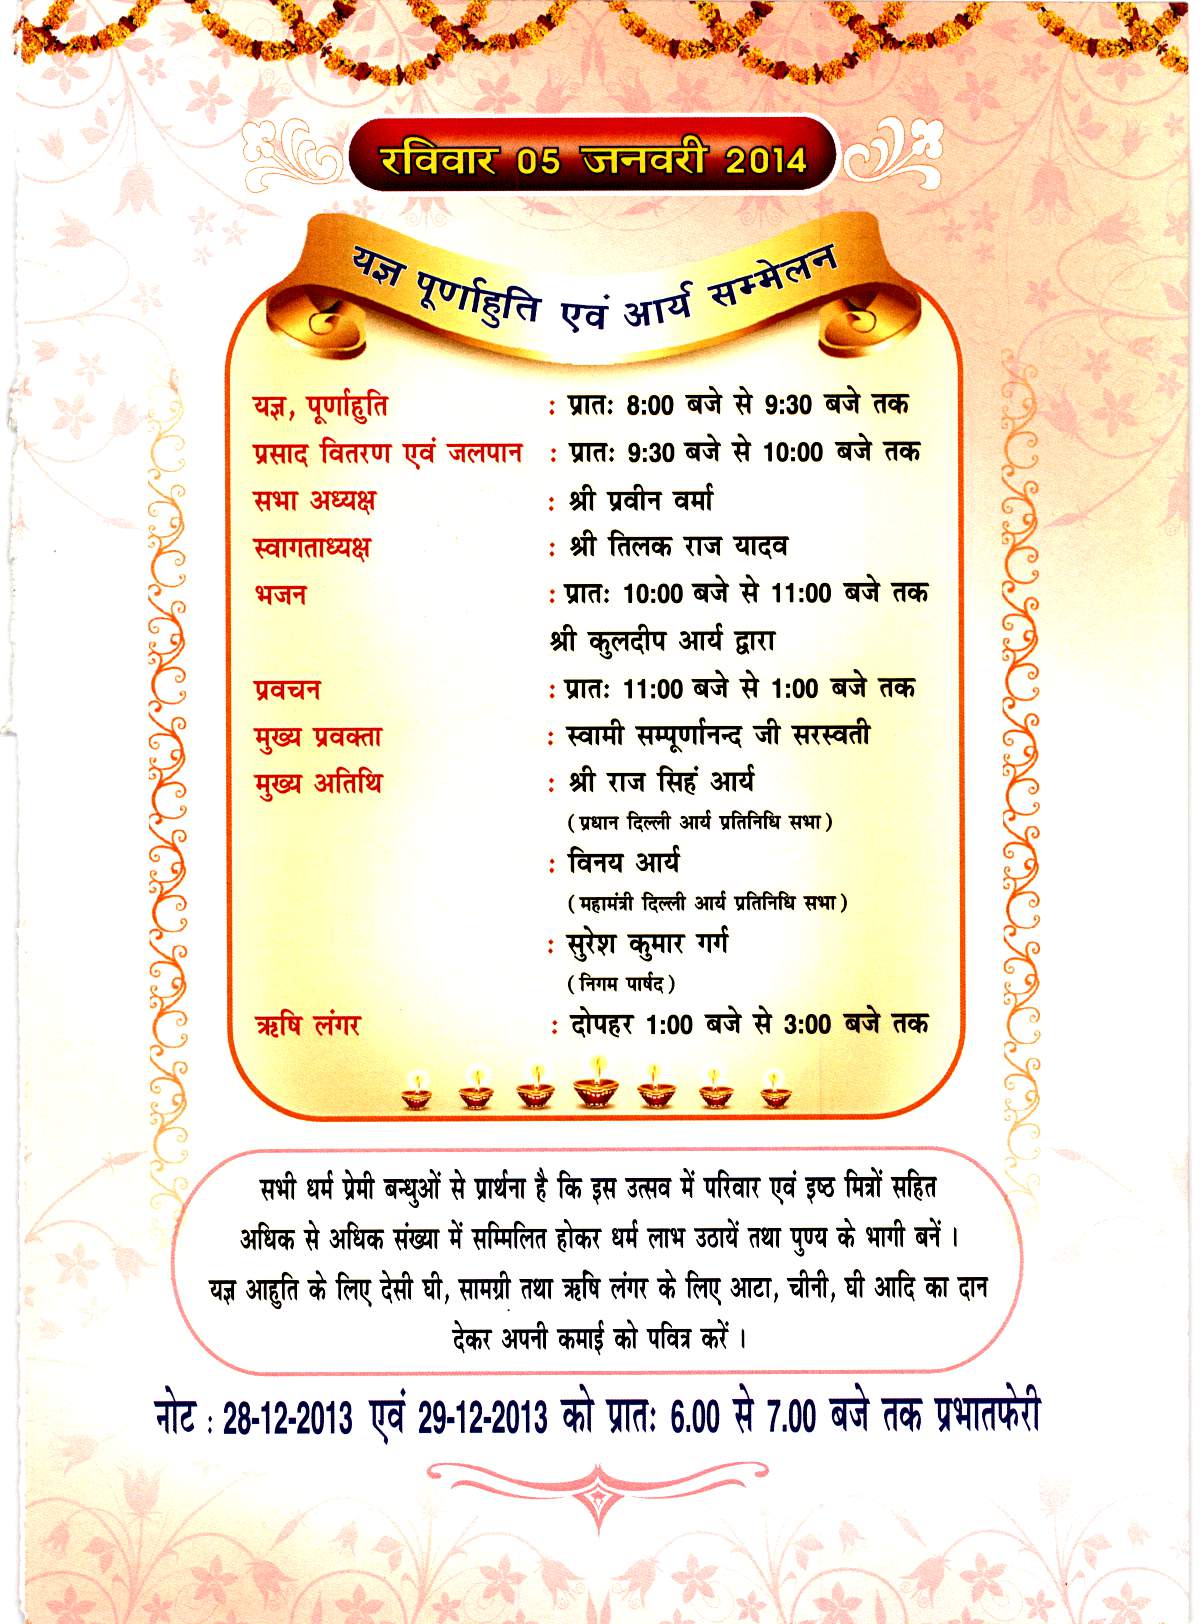 रविवार 05 जनवरी 2014
यज्ञ पूर्णाहुति एवं आर्य सम्मेलन
यज्ञ, पूर्णाहुति : प्रातः 8:00 बजे से 9:30 बजे तक
प्रसाद वितरण एवं जलपान : प्रातः 9:30 बजे से 10:00 बजे तक
सभा अध्यक्ष : श्री प्रवीन वर्मा
स्वागताध्यक्ष : श्री तिलक राज यादव
भजन : प्रातः 10:00 बजे से 11:00 बजे तक
श्री कुलदीप आर्य द्वारा
प्रवचन : प्रातः 11:00 बजे से 1:00 बजे तक
मुख्य प्रवक्ता : स्वामी सम्पूर्णानन्द जी सरस्वती
मुख्य अतिथि : श्री राज सिहं आर्य
(प्रधान दिल्ली आर्य प्रतिनिधि सभा)
: विनय आर्य
(महामंत्री दिल्ली आर्य प्रतिनिधि सभा)
: सुरेश कुमार गर्ग
(निगम पार्षद)
ऋषि लंगर : दोपहर 1:00 बजे से 3:00 बजे तक
सभी धर्म प्रेमी बन्धुओं से प्रार्थना है कि इस उत्सव में परिवार एवं इष्ठ मित्रों सहित
अधिक से अधिक संख्या में सम्मिलित होकर धर्म लाभ उठायें तथा पुण्य के भागी बनें ।
यज्ञ आहुति के लिए देसी घी, सामग्री तथा ऋषि लंगर के लिए आटा, चीनी, घी आदि का दान
देकर अपनी कमाई को पवित्र करें ।
नोट : 28-12-2013 एवं 29-12-2013 को प्रातः 6.00 से 7.00 बजे तक प्रभातफेरी